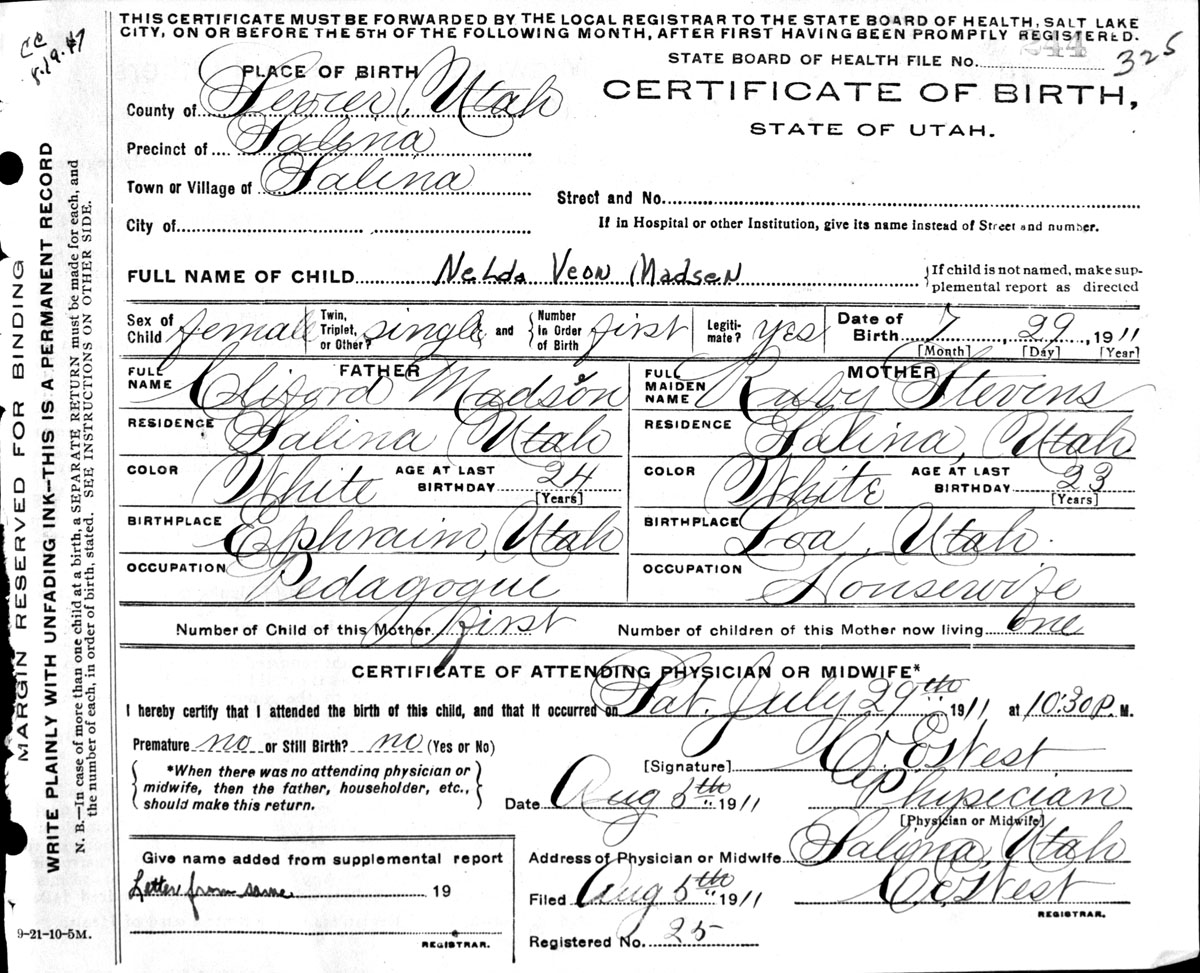 CC
8.19.47
THIS CERTIFICATE MUST BE FORWARDED BY THE LOCAL REGISTRAR TO THE STATE BOARD OF HEALTH, SALT LAKE
CITY, ON OR BEFORE THE 5TH OF THE FOLLOWING MONTH, AFTER FIRST HAVING BEEN PROMPTLY REGISTERED.
STATE BOARD OF HEALTH FILE No. 244 325
PLACE OF BIRTH
CERTIFICATE OF BIRTH,
STATE OF UTAH.
County of Sevier, Utah
Precinct of Salina
Town or Village of Salina
Street and No.
City of
If in Hospital or other Institution, give its name instead of Street and number.
FULL NAME OF CHILD Nelda Veon Madsen {If child is not named, make sup-
plemental report as directed
Sex of Child female Twin, Triplet, or Other? single and {Number in Order of Birth first Legiti-mate? yes Date of Birth 7, 29, 1911
[Month] [Day] [Year]
FATHER MOTHER
FULL NAME Cliford Madsen FULL MAIDEN NAME Ruby Stevens
RESIDENCE Salina Utah RESIDENCE Salina, Utah
COLOR White AGE AT LAST BIRTHDAY 24 [Years] COLOR White AGE AT LAST BIRTHDAY 23 [Years]
BIRTHPLACE Ephraim, Utah BIRTHPLACE Loa, Utah.
OCCUPATION Pedagogue OCCUPATION Housewife
Number of Child of this Mother first Number of children of this Mother now living one
CERTIFICATE OF ATTENDING PHYSICIAN OR MIDWIFE*
I hereby certify that I attended the birth of this child, and that it occurred on Sat. July 29th 1911 at 10:30 P. M.
Premature no or Still Birth? no (Yes or No)
[Signature] C. E. West
{*When there was no attending physician or
midwife, then the father, householder, etc.,
should make this return.}
Date Aug 5th 1911 Physician
[Physician or Midwife]
Give name added from supplemental report
Letter from same 19
REGISTRAR.
Address of Physician or Midwife Salina, Utah
Filed Aug 5th 1911 C. E. West
REGISTRAR.
Registered No. 25
9-21-10-5M.
MARGIN RESERVED FOR BINDING
WRITE PLAINLY WITH UNFADING INK—THIS IS A PERMANENT RECORD
N. B.—In case of more than one child at a birth, a SEPARATE RETURN must be made for each, and
the number of each, in order of birth, stated. SEE INSTRUCTIONS ON OTHER SIDE.